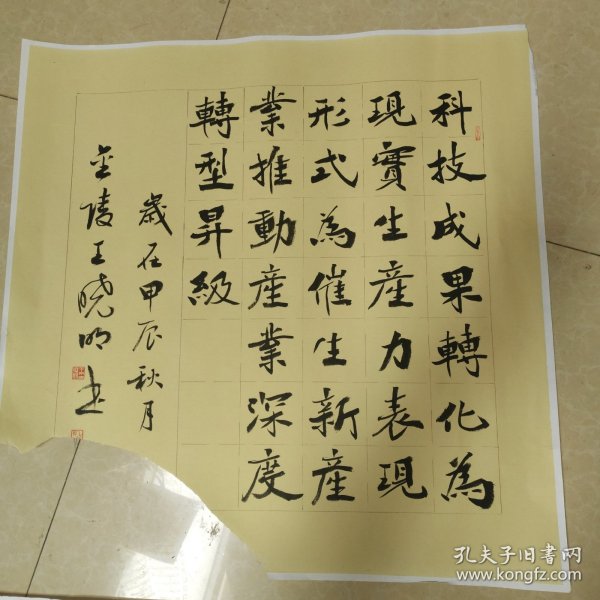 科技成果轉化為
現實生產力表現
形式為催生新產
業推動產業深度
轉型昇級
歲在甲辰秋月
金陵王曉明書
孔夫子旧书网
www.kongfz.com